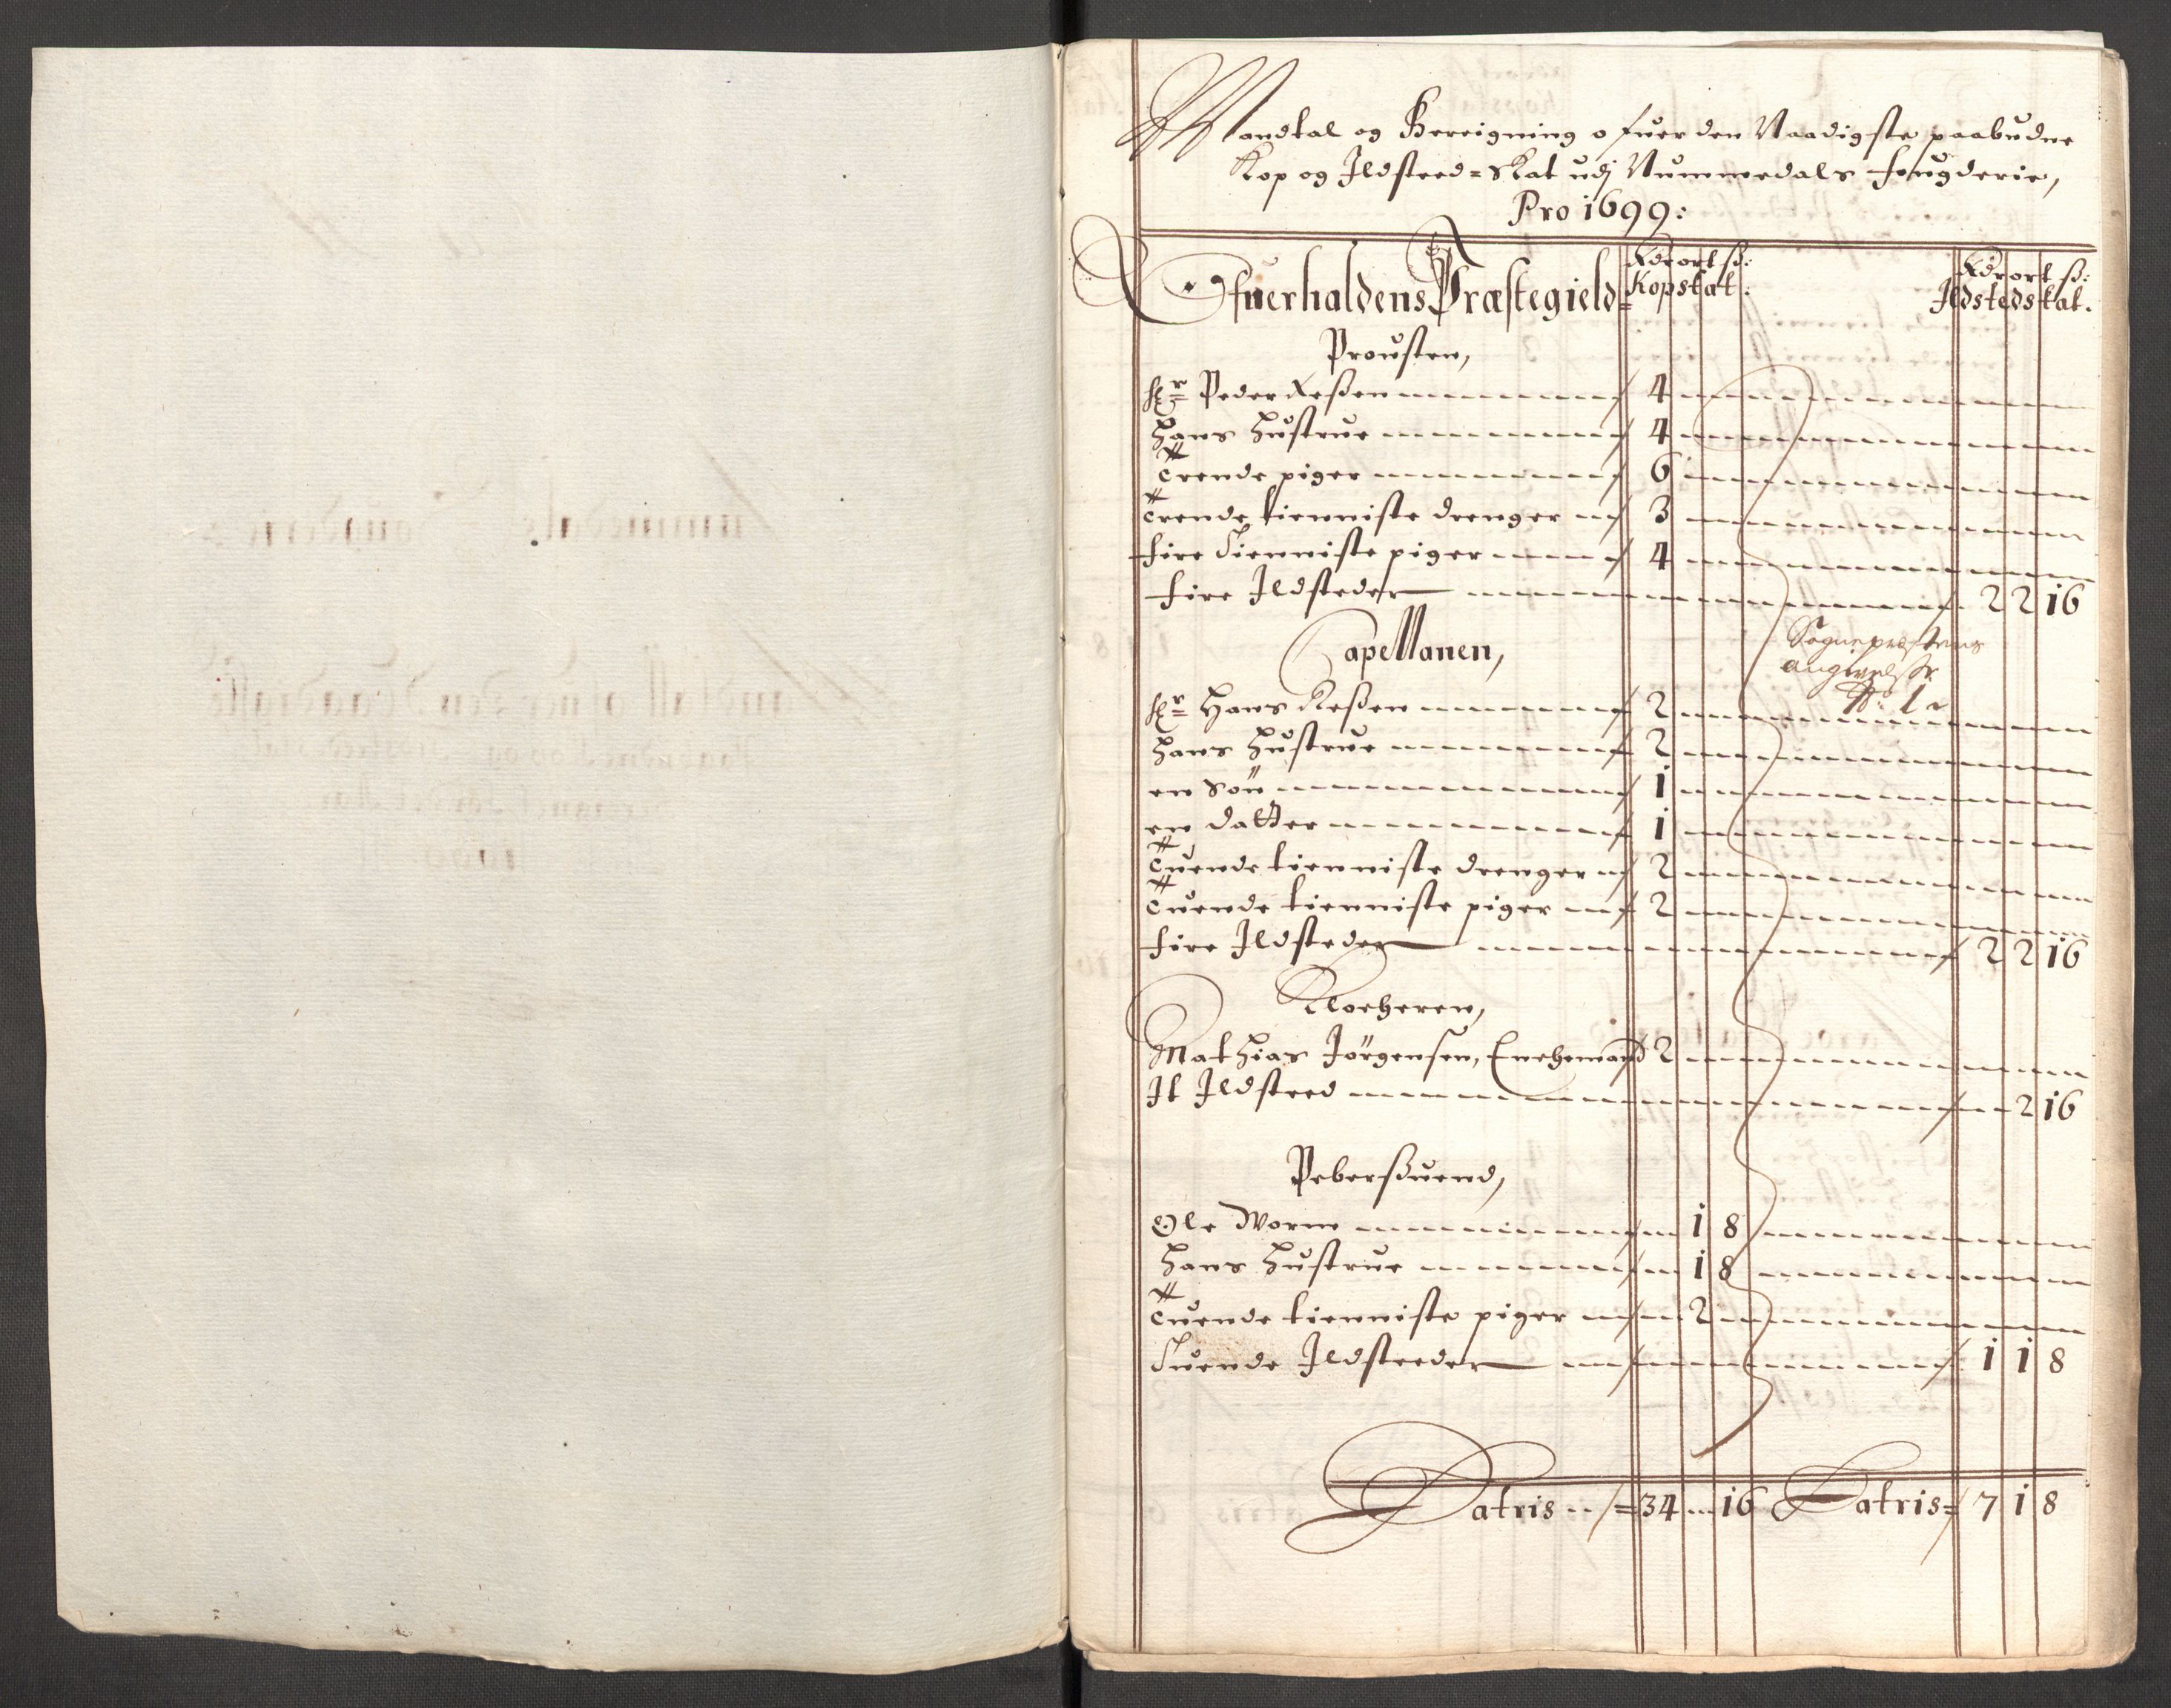 Mandtal og Bereigning ofuer den Naadigste paabudne
Kop og Ildsteed=Skat udj Nummedals fougderie,
Pro 1699:
Ofuerhaldens Præstegield=
Rdr ort ß:
Kopskat:
Rdr ort ß:
Ildstedskat.
Prousten,
Hr Peder 4
hans hustrue 4
Trende piger 6
Trende tienniste drenger 3
fire Tienniste piger 4
fire Ildsteder 2 2 16
Sognepræstens
angivelse
No 1
Capellanen,
Hr Hans 2
hans hustrue 2
en Søn 1
en datter 1
Tuende tienniste drenger 2
Tuende tienniste piger 2
fire Ildsteder 2 2 16
Klocheren,
Mathias Jørgensen, Enchemand 2
It Ildsteed 2 16
Pebersuend,
Ole Worm 1 8
hans hustrue 1 8
Tuende tienniste piger 2
Tuende Ildsteeder 1 1 8
Latris 34 16 Latris 7 1 8